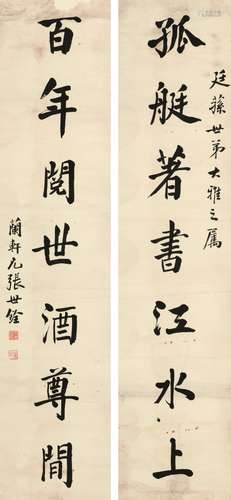 廷蓀世弟大雅之屬
孤艇著書江水上
百年閱世酒尊間
蘭軒兄張世銓